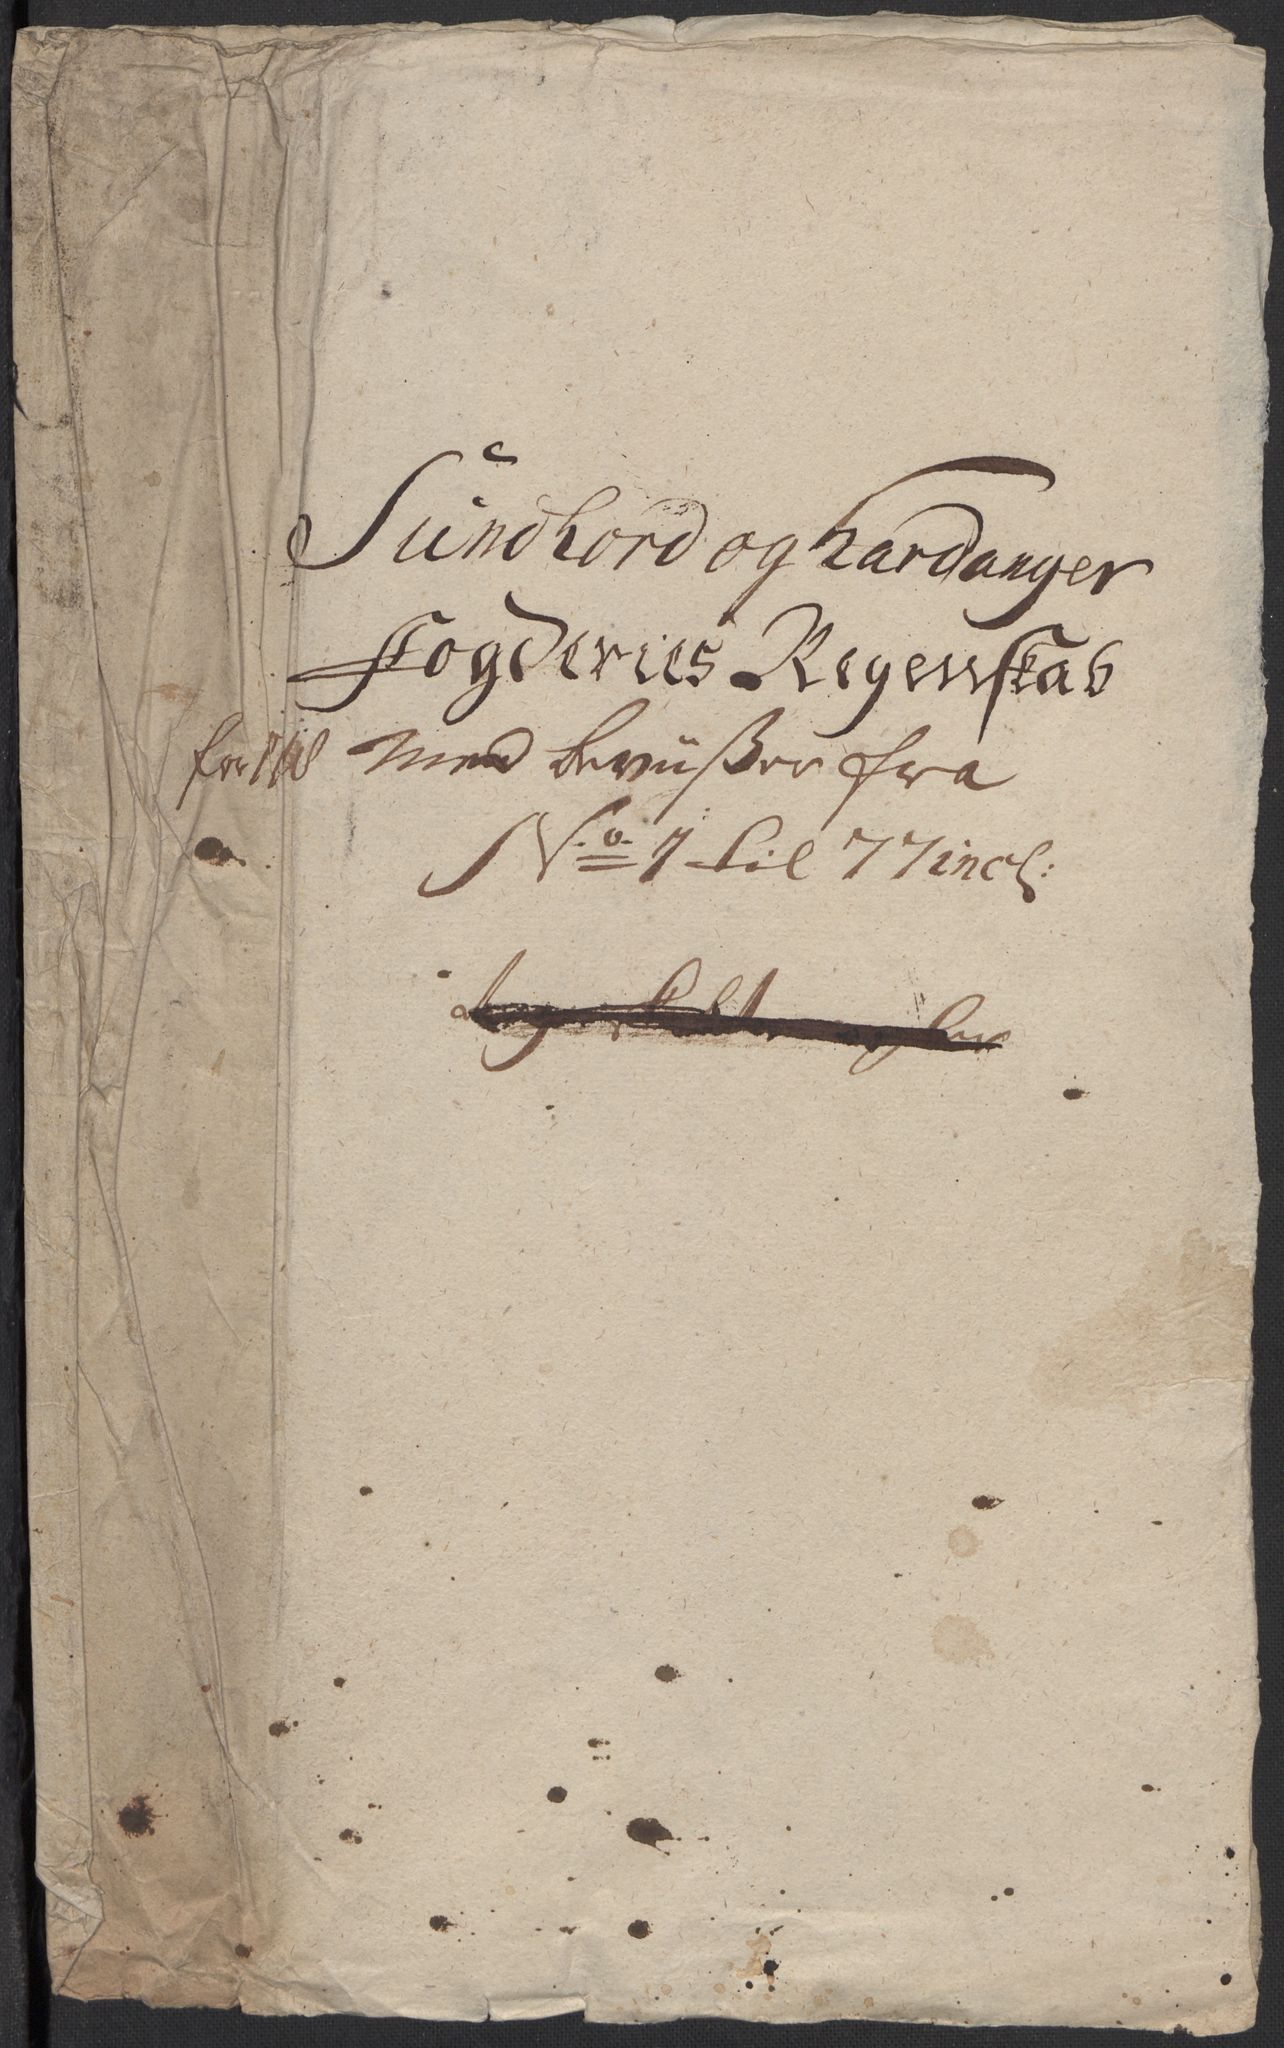 Sündhord og hardanger
ffogderies Regenskab
for med beviißer fra
N.o 1 til 77 incl: